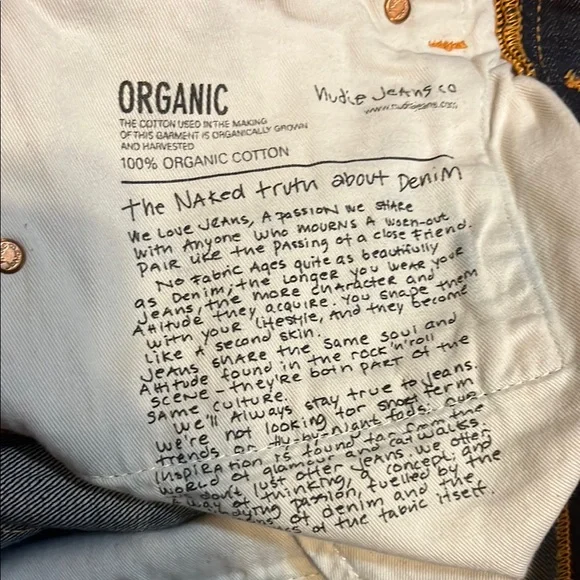 ORGANIC
nudie Jeans co
www.nudiejeans.com
THE COTTON USED IN THE MAKING
OF THIS GARMENT IS ORGANICALLY GROWN
AND HARVESTED
100% ORGANIC COTTON
the Naked truth about Denim
We Love Jeans, A passion we share
with Anyone who mourns A worn-out
pair like the passing of a close friend.
No Fabric Ages quite as beautifully
as Denim; the longer you wear your
Jeans, the more character and
Attitude they acquire. You shape them
with your lifestyle, and they become
like a second skin.
Jeans share the same soul and
Attitude found in the rock'n'roll
scene - they're both part of the
same culture.
We'll Always stay true to Jeans.
We're not looking for short term
trends or flu-by-night fads; our
inspiration is found far from the
world of glamour and catwalks.
We don't just offer jeans. We offer
A way of thinking, A concept, and
passion, fuelled by the
of denim and the
of the fabric itself.